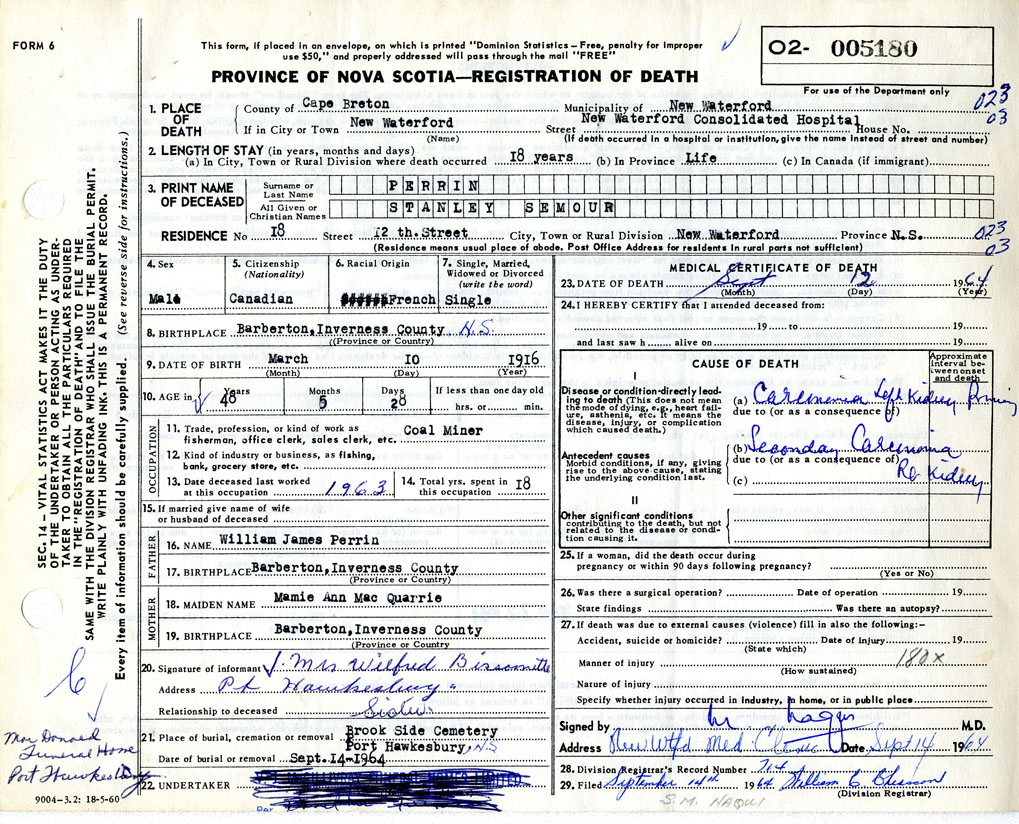 FORM 6
This form, if placed in an envelope, on which is printed "Dominion Statistics – Free, penalty for improper
use $50," and properly addressed will pass through the mail "FREE"
O2- 005180
For use of the Department only
PROVINCE OF NOVA SCOTIA—REGISTRATION OF DEATH
023
03
1. PLACE OF DEATH
County of Cape Breton Municipality of New Waterford
If in City or Town New Waterford Street New Waterford Consolidated Hospital House No.
(Name) (If death occurred in a hospital or institution, give the name instead of street and number)
2. LENGTH OF STAY (in years, months and days)
(a) In City, Town or Rural Division where death occurred 18 years (b) In Province Life (c) In Canada (if immigrant)
3. PRINT NAME OF DECEASED
Surname or Last Name PERRIN
All Given or Christian Names STANLEY SEMOUR
RESIDENCE No 18 Street 12 th.Street City, Town or Rural Division New Waterford Province N.S.
(Residence means usual place of abode. Post Office Address for residents in rural parts not sufficient)
023
03
4. Sex
Male
5. Citizenship
(Nationality)
Canadian
6. Racial Origin
French
7. Single, Married,
Widowed or Divorced
(write the word)
Single
8. BIRTHPLACE Barberton,Inverness County N.S.
((Province or Country)
9. DATE OF BIRTH March 10 1916
(Month) (Day) (Year)
10. AGE in
Years Months Days If less than one day old
48 5 28 hrs. or min.
OCCUPATION
11. Trade, profession, or kind of work as
fisherman, office clerk, sales clerk, etc. Coal Miner
12. Kind of industry or business, as fishing,
bank, grocery store, etc.
13. Date deceased last worked
at this occupation 1963
14. Total yrs. spent in
this occupation 18
15. If married give name of wife
or husband of deceased
FATHER
16. NAME William James Perrin
17. BIRTHPLACE Barberton,Inverness County
(Province or Country)
MOTHER
18. MAIDEN NAME Mamie Ann Mac Quarrie
19. BIRTHPLACE Barberton,Inverness County
(Province or Country
20. Signature of informant Mrs Wilfred
Address Pt Hawkesbury
Relationship to deceased Sister
21. Place of burial, cremation or removal Brook Side Cemetery
Port Hawkesbury, N.S
Date of burial or removal Sept.14-1964
22. UNDERTAKER
Per
9004-3.2: 18-5-60
Mac Donald
Funeral Home
Port Hawkesbury
SEC. 14 – VITAL STATISTICS ACT MAKES IT THE DUTY
OF THE UNDERTAKER OR PERSON ACTING AS UNDER-
TAKER TO OBTAIN ALL THE PARTICULARS REQUIRED
IN THE "REGISTRATION OF DEATH" AND TO FILE THE
SAME WITH THE DIVISION REGISTRAR WHO SHALL ISSUE THE BURIAL PERMIT.
WRITE PLAINLY WITH UNFADING INK. THIS IS A PERMANENT RECORD.
Every item of information should be carefully supplied. (See reverse side for instructions.)
MEDICAL CERTIFICATE OF DEATH
23. DATE OF DEATH Sept 12 1964
(Month) (Day) (Year)
24. I HEREBY CERTIFY that I attended deceased from:
19 to 19
and last saw h alive on 19
CAUSE OF DEATH
Approximate
interval be-
tween onset
and death
I
Disease or condition directly lead-
ing to death (This does not mean
the mode of dying, e.g., heart fail-
ure, asthenia, etc. It means the
disease, injury, or complication
which caused death.)
(a) Carcinoma Left Kidney Primary
due to (or as a consequence of)
Antecedent causes
Morbid conditions, if any, giving
rise to the above cause, stating
the underlying condition last.
(b) Secondary Carcinoma
due to (or as a consequence of)
(c) Rt Kidney
II
Other significant conditions
contributing to the death, but not
related to the disease or condi-
tion causing it.
25. If a woman, did the death occur during
pregnancy or within 90 days following pregnancy?
(Yes or No)
26. Was there a surgical operation? Date of operation 19
State findings Was there an autopsy?
27. If death was due to external causes (violence) fill in also the following:–
Accident, suicide or homicide? Date of injury 19
(State which)
Manner of injury 180x
(How sustained)
Nature of injury
Specify whether injury occurred in Industry, in home, or in public place
Signed by M Naqui M.D.
Address New Wtfd Med Clinic Date Sept 14 1964
28. Division Registrar's Record Number 714
29. Filed September 14th 1964 William C
(Division Registrar)
S.M. NAQUI